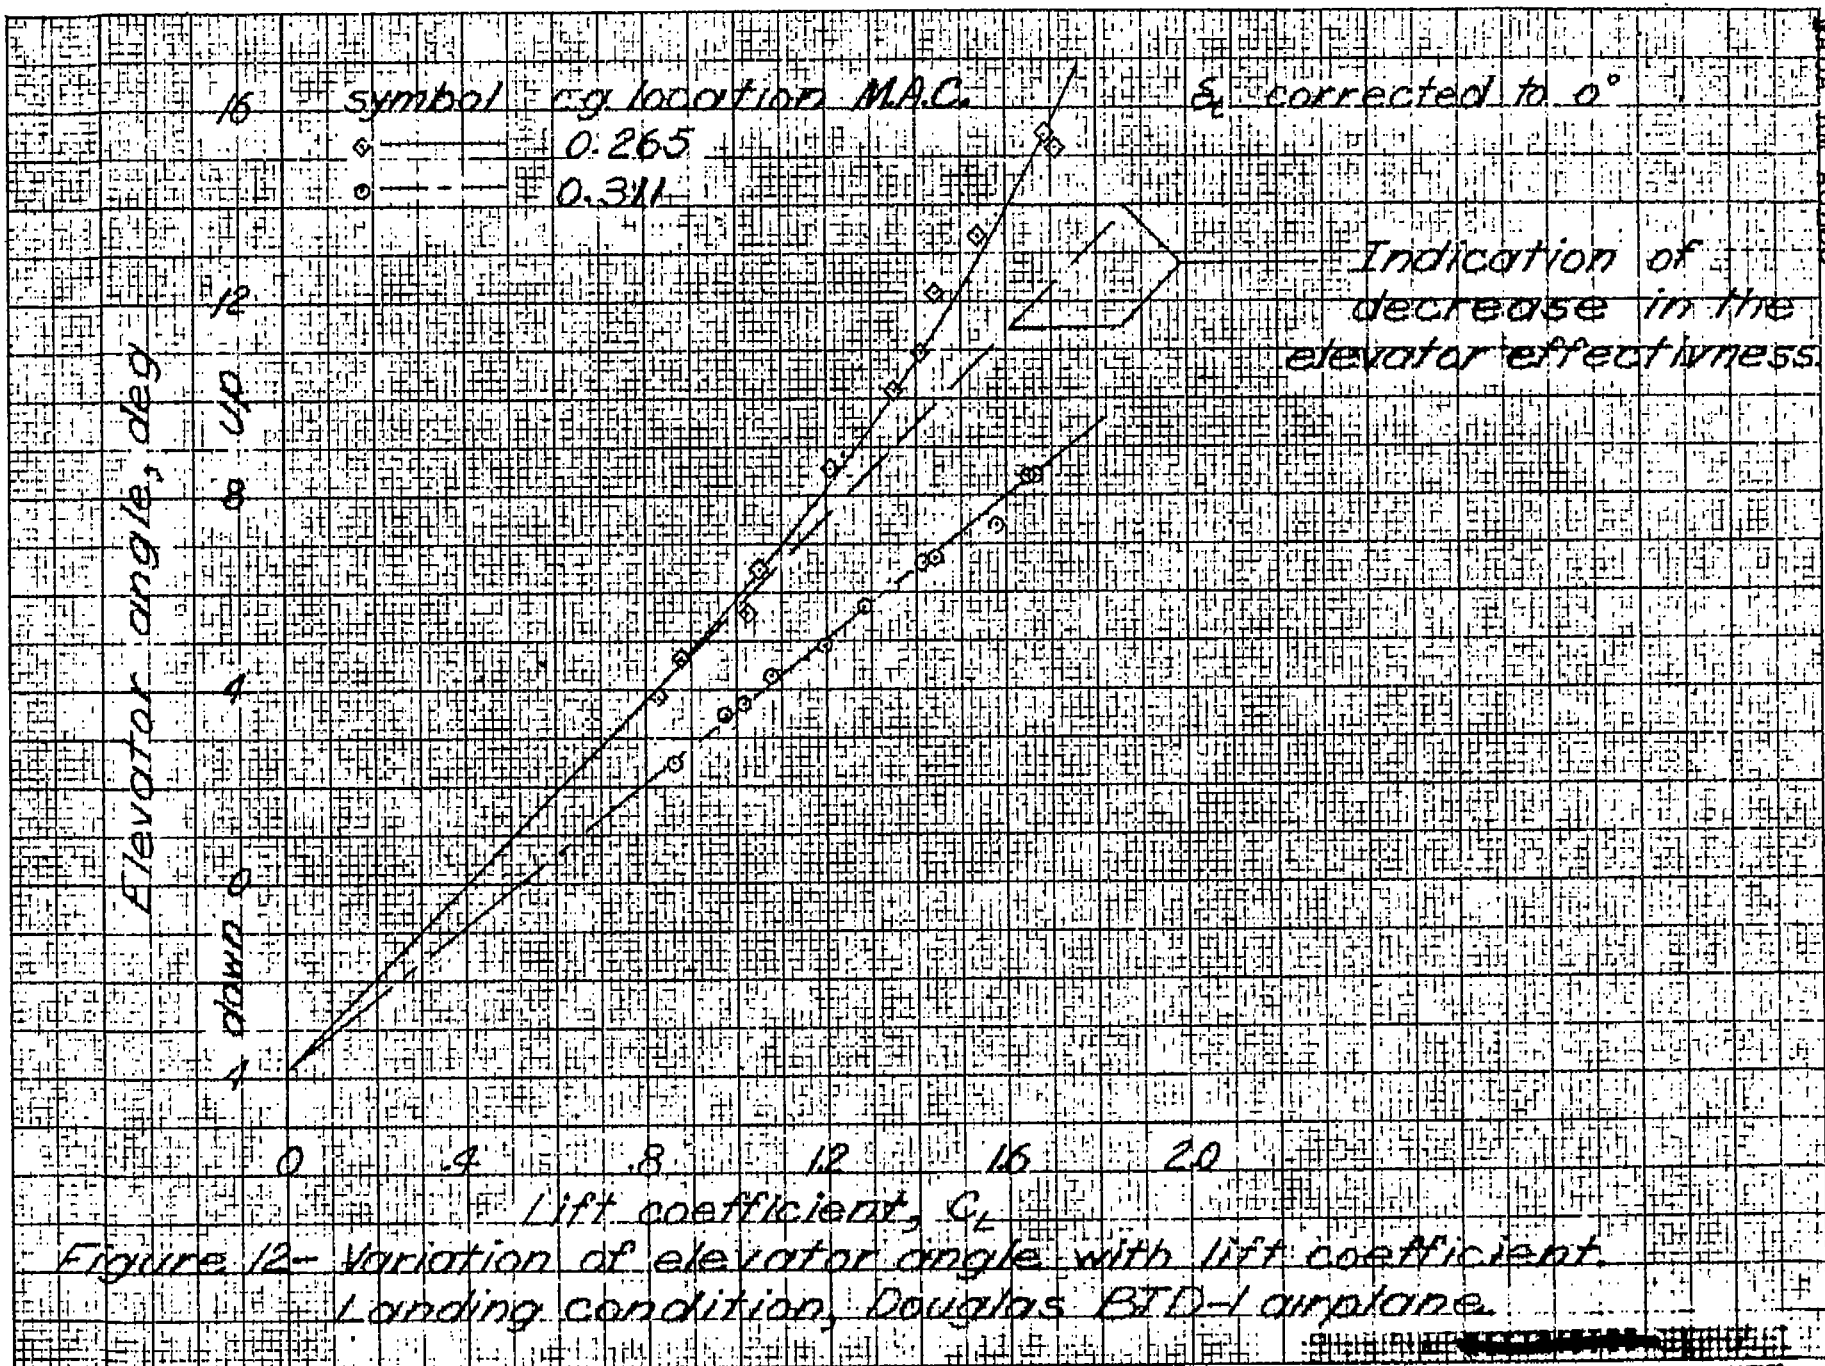 16 symbol c.g. location M.A.C. δt corrected to 0°
0.265
0.311
Indication of
decrease in the
elevator effectivness.
12
8
4
0
4
Elevator angle, deg
up
down
0 .4 .8 1.2 1.6 2.0
Lift coefficient, CL
Figure 12- Variation of elevator angle with lift coefficient.
Landing condition, Douglas BTD-1 airplane.